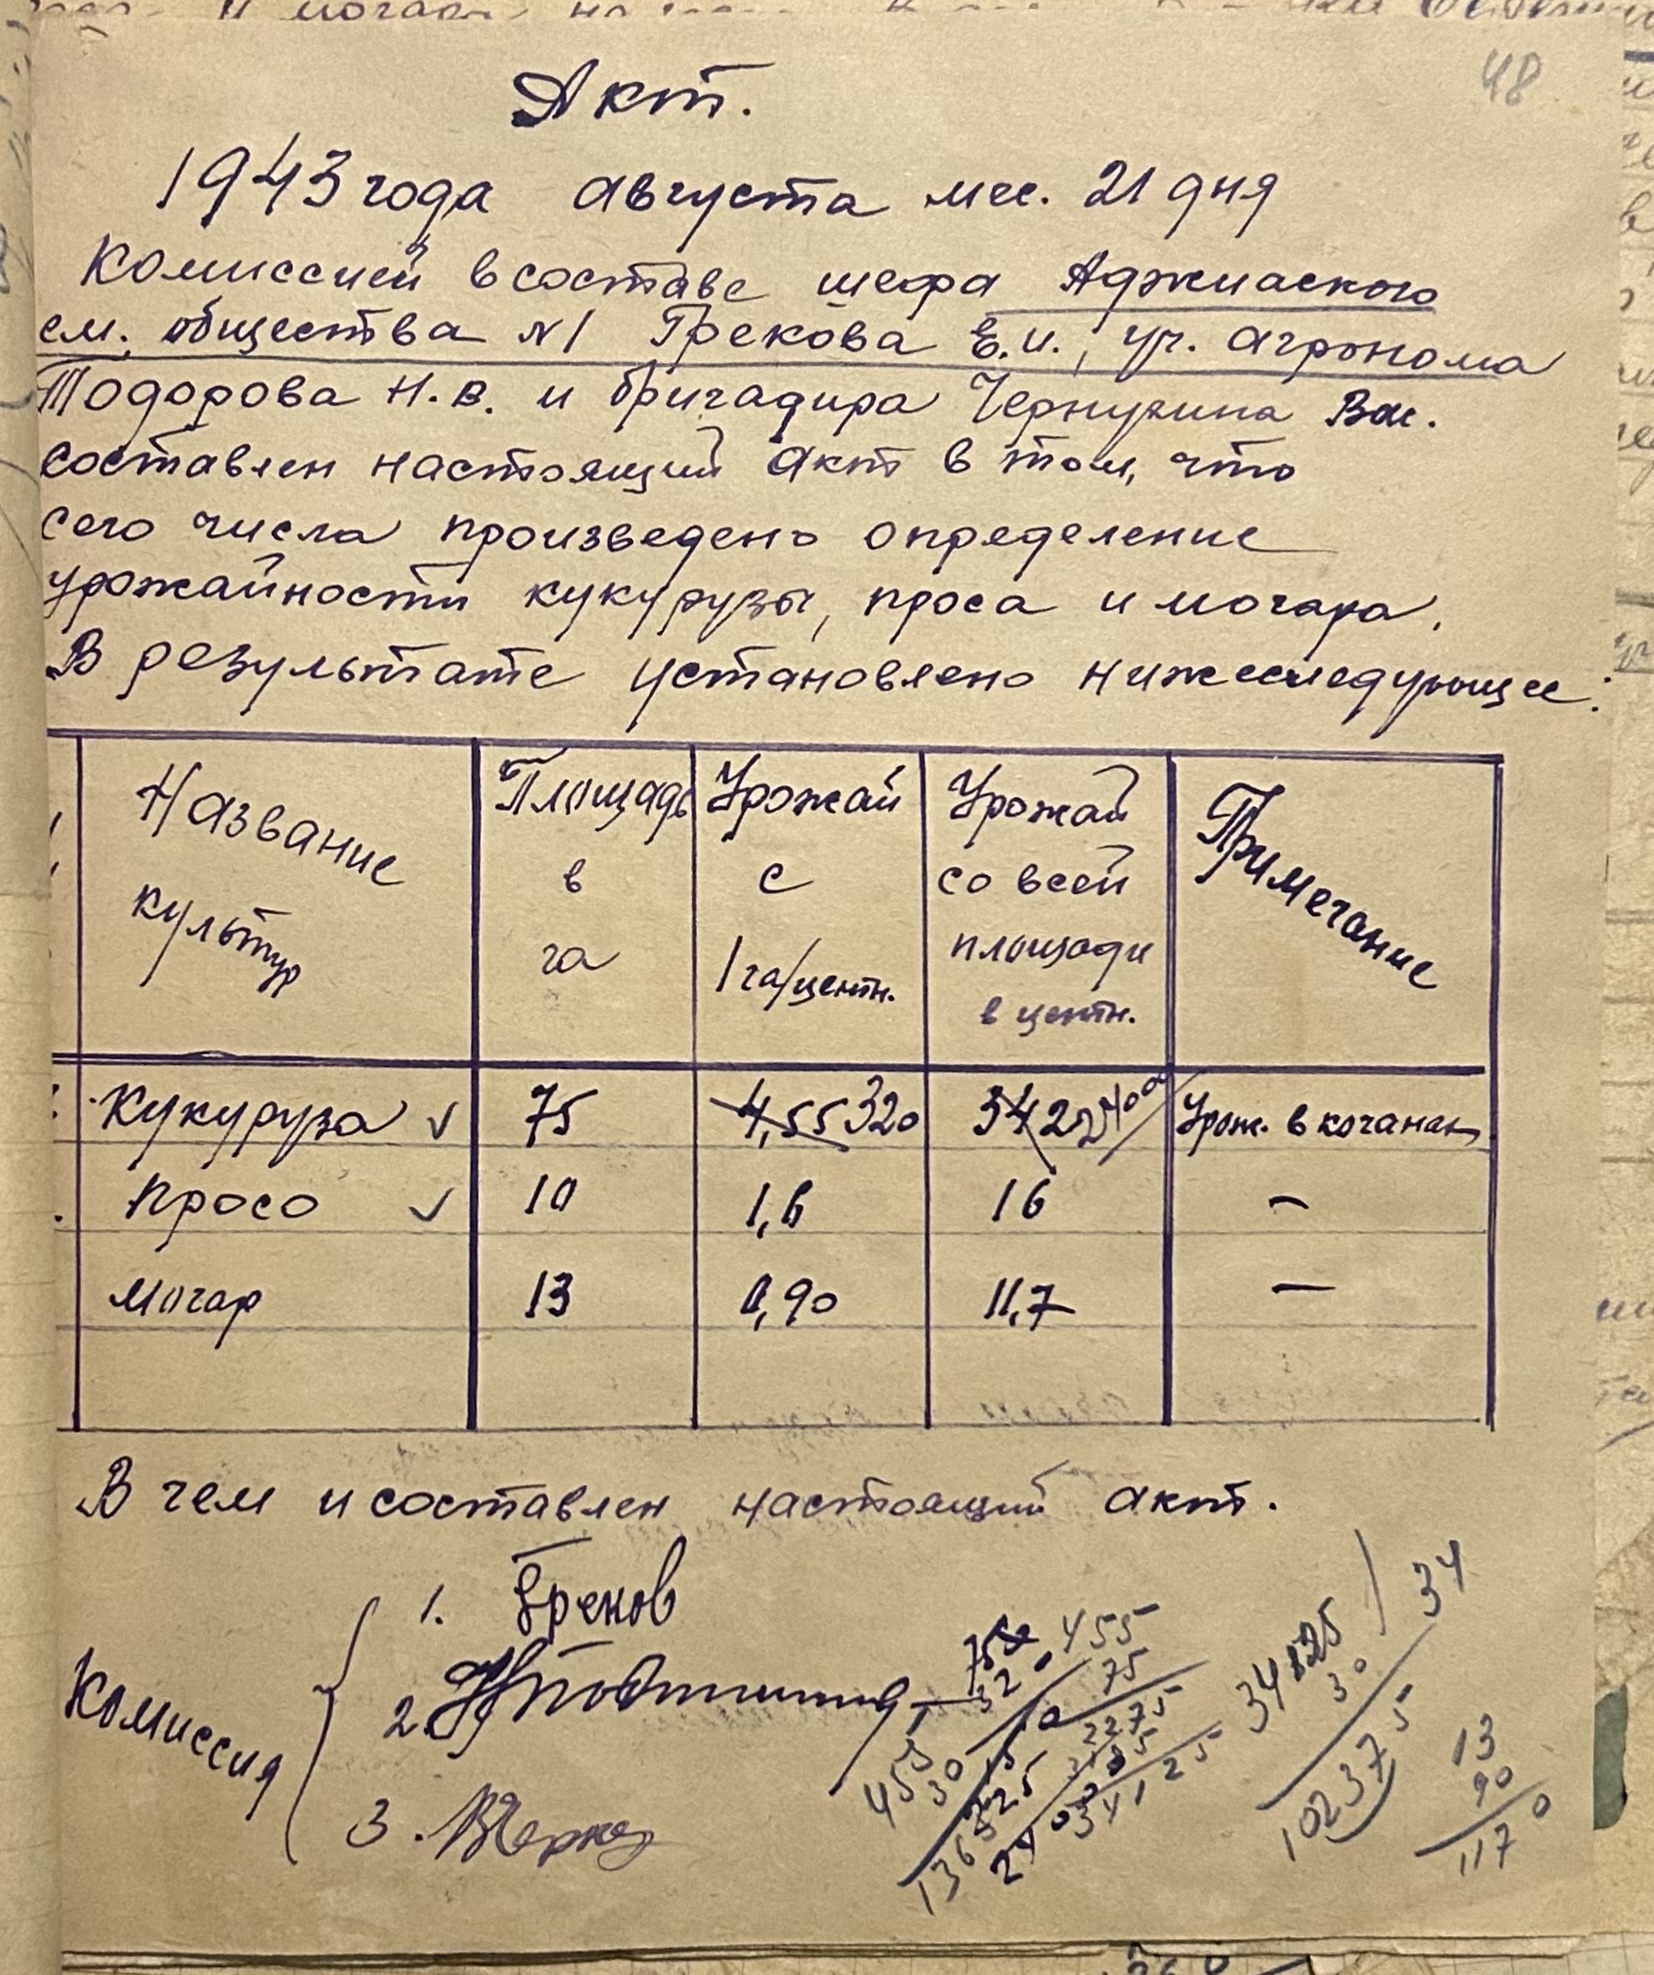 48
Акт.
1943 года августа мес. 21 дня
Комиссией в составе шефа Аджиаского
см. общества N1 Грекова Е.И., уч. агронома
Тодорова Н.В. и бригадира Чернухина Вас.
составлен настоящий акт в том, что
сего числа произведено определение
урожайности кукурузы, проса и могара.
В результате установлено нижеследующее:
Название культур
Площадь в га
Урожай с 1 га/центн.
Урожай со всей площади в центн.
Примечание
Кукуруза ✓ 75 4,55 320 342 2400 Урож. в кочанах
Просо ✓ 10 1,6 16 —
Могар 13 0,90 11,7 —
В чем и составлен настоящий акт.
Комиссия
1. Греков
2.
3.
455
75
2275
3185
34125
455
30
13650
320
24000
34125
30
102375
34
13
90
1170